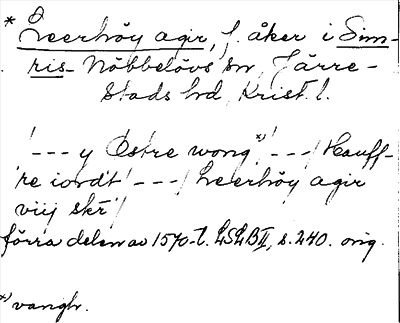 * Leerhöy agir, f. åker i Sim-
ris- Nöbbelövs sn, Järre-
stads hd, Krist. l.
'--- y Østre wong x) ---/ Hauff-
re iordt' ---/ Leerhöy agir
viij skr'/
förra delen av 1570-t. LSLB II, s. 240. orig.
x) vangh.